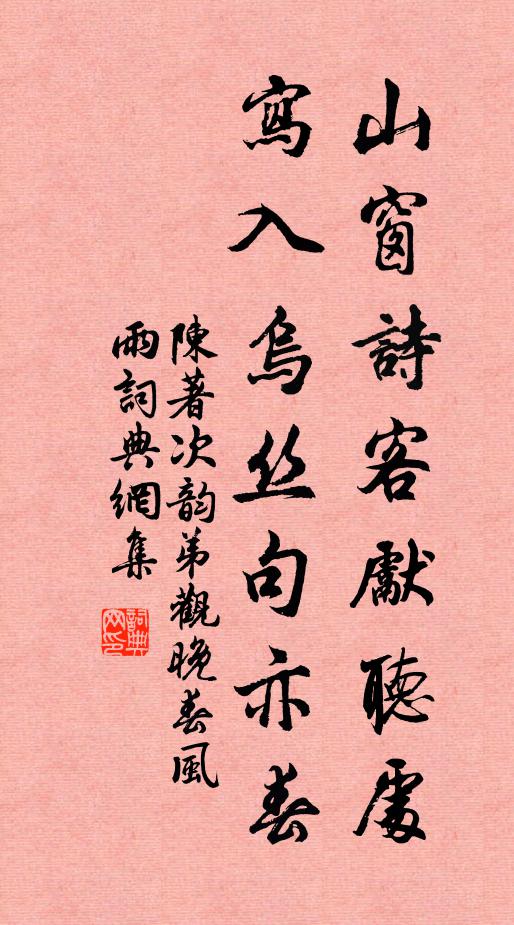 山窗詩客獻聽處
寫入烏丝句亦春
陳著次韵弟觀晚春風
雨詞典網集
詞典网印